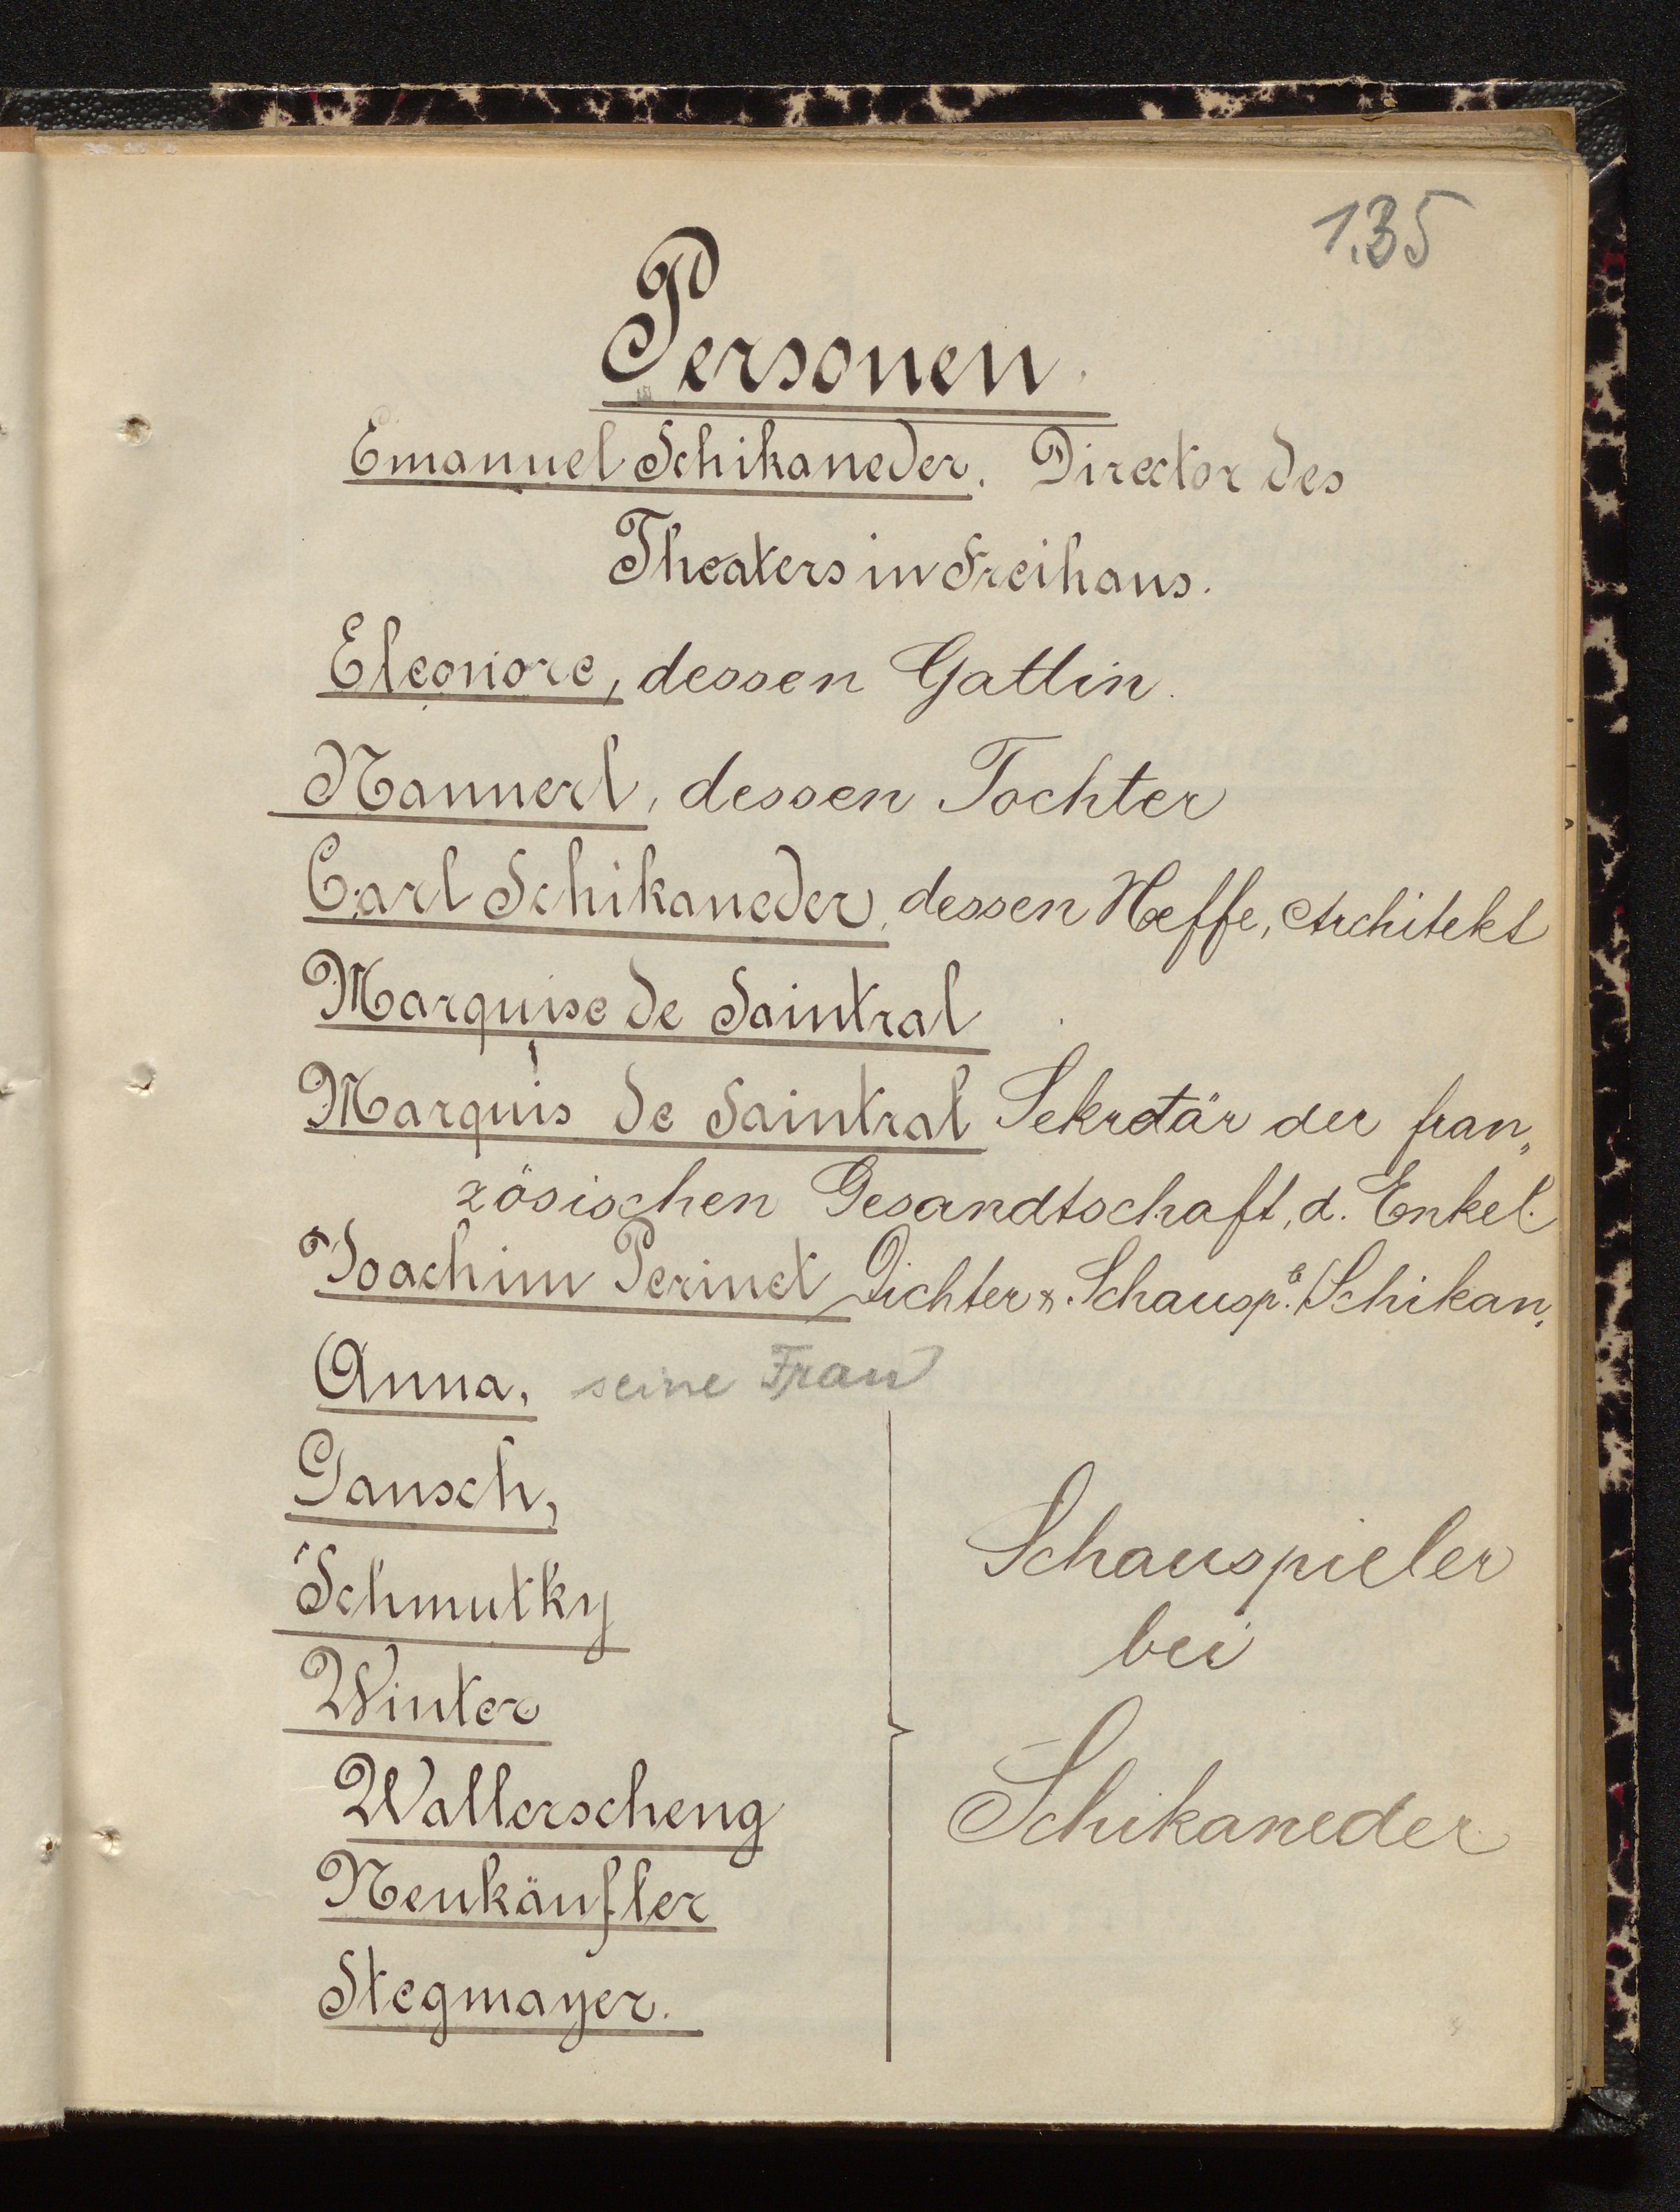 135
Personen.
Emanuel Schikaneder. Director des
Theaters in Freihaus.
Eleonore, dessen Gattin.
Nannerl, dessen Tochter
Carl Schikaneder, dessen Neffe, Architekt
Marquise de Saintral
Marquis de Saintral Sekretär der fran„
zösischen Gesandtschaft, d. Enkel.
Joachim Perinet Dichter u. Schausp. b Schikan.
Anna, seine Frau
Gansch,
Schmutky
Winter
Wallerscheng
Neukäufler
Stegmayer.
Schauspieler
bei
Schikaneder